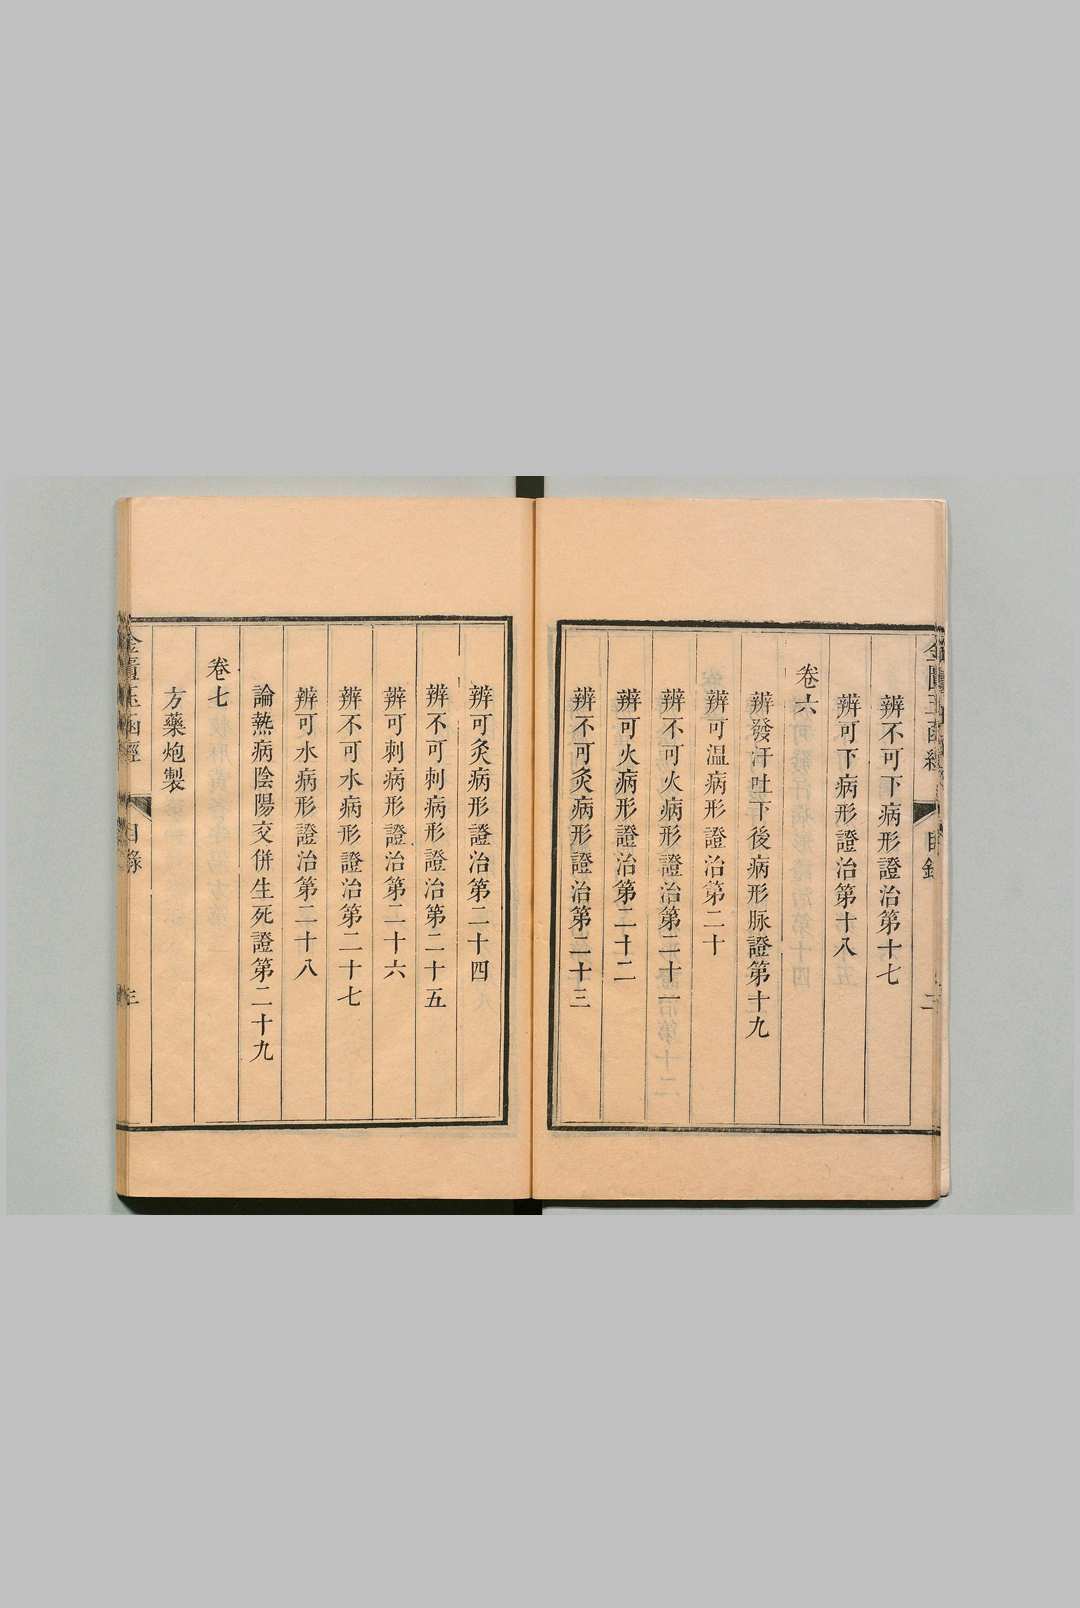 辨不可下病形證治第十七
辨可下病形證治第十八
卷六
辨發汗吐下後病形脉證第十九
辨可温病形證治第二十
辨不可火病形證治第二十一
辨可火病形證治第二十二
辨不可灸病形證治第二十三
辨可灸病形證治第二十四
辨不可刺病形證治第二十五
辨可刺病形證治第二十六
辨不可水病形證治第二十七
辨可水病形證治第二十八
論熱病陰陽交併生死證第二十九
卷七
方藥炮製
金匱玉函經 目錄 三